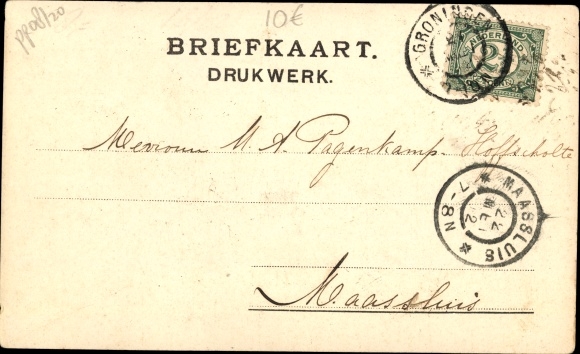 pp08/20
10€
BRIEFKAART.
DRUKWERK.
GRONINGEN
NEDERLAND
2½
Mevrouw M. A. Pagenkamp-Hoffscholte
MAASSLUIS
7-8N
22
12
Maassluis